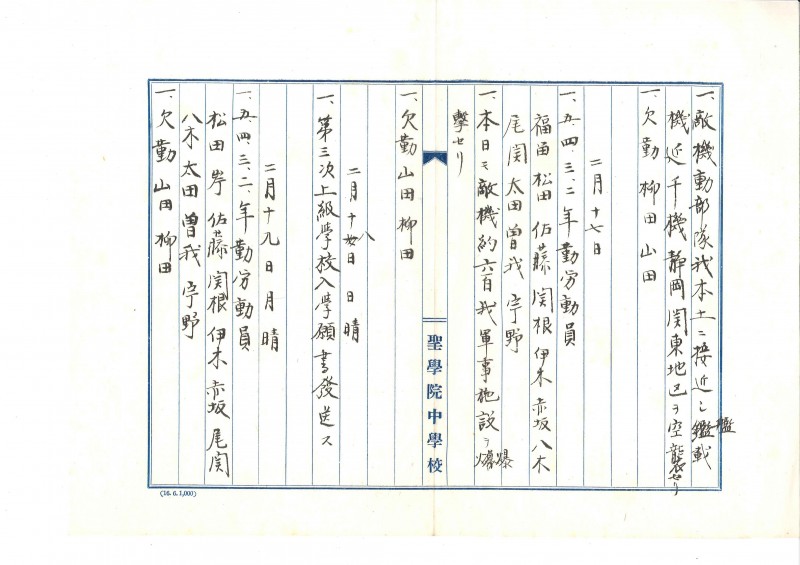 一、敵機動部隊我本土ニ接近シ艦載
機近千機静岡関東地区ヲ空襲セリ
一、欠勤 柳田 山田
二月十七日
一、五、四、三、二年勤労動員
福田 松田 佐藤 関根 伊木 赤坂 八木
尾関 太田 曽我 宇野
一、本日モ敵機約六百我軍事施設ヲ爆
撃セリ
一、欠勤 山田 柳田
聖學院中學校
二月十八日 日 晴
一、第三次上級學校入學願書發送ス
二月十九日 月 晴
一、五、四、三、二、年勤労動員
松田 岸 佐藤 関根 伊木 赤坂 尾関
八木 太田 曽我 宇野
一、欠勤 山田 柳田
(16.6.1,000)